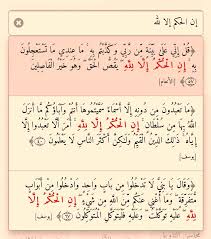 إن الحكم إلا لله
﴿قُلْ إِنِّي عَلَى بَيِّنَةٍ مِّن رَّبِّي وَكَذَّبْتُم بِهِ مَا عِندِي مَا تَسْتَعْجِلُونَ
بِهِ إِنِ الْحُكْمُ إِلَّا لِلَّهِ يَقُصُّ الْحَقَّ وَهُوَ خَيْرُ الْفَاصِلِينَ
﴿٥٧﴾ [الأنعام]
﴿مَا تَعْبُدُونَ مِن دُونِهِ إِلَّا أَسْمَاءً سَمَّيْتُمُوهَا أَنتُمْ وَآبَاؤُكُم مَّا أَنزَلَ
اللَّهُ بِهَا مِن سُلْطَانٍ إِنِ الْحُكْمُ إِلَّا لِلَّهِ أَمَرَ أَلَّا تَعْبُدُوا إِلَّا
إِيَّاهُ ذَلِكَ الدِّينُ الْقَيِّمُ وَلَكِنَّ أَكْثَرَ النَّاسِ لَا يَعْلَمُونَ
﴿٤٠﴾ [يوسف]
﴿وَقَالَ يَا بَنِيَّ لَا تَدْخُلُوا مِن بَابٍ وَاحِدٍ وَادْخُلُوا مِنْ أَبْوَابٍ
مُّتَفَرِّقَةٍ وَمَا أُغْنِي عَنكُم مِّنَ اللَّهِ مِن شَيْءٍ إِنِ الْحُكْمُ إِلَّا لِلَّهِ
عَلَيْهِ تَوَكَّلْتُ وَعَلَيْهِ فَلْيَتَوَكَّلِ الْمُتَوَكِّلُونَ ﴿٦٧﴾ [يوسف]